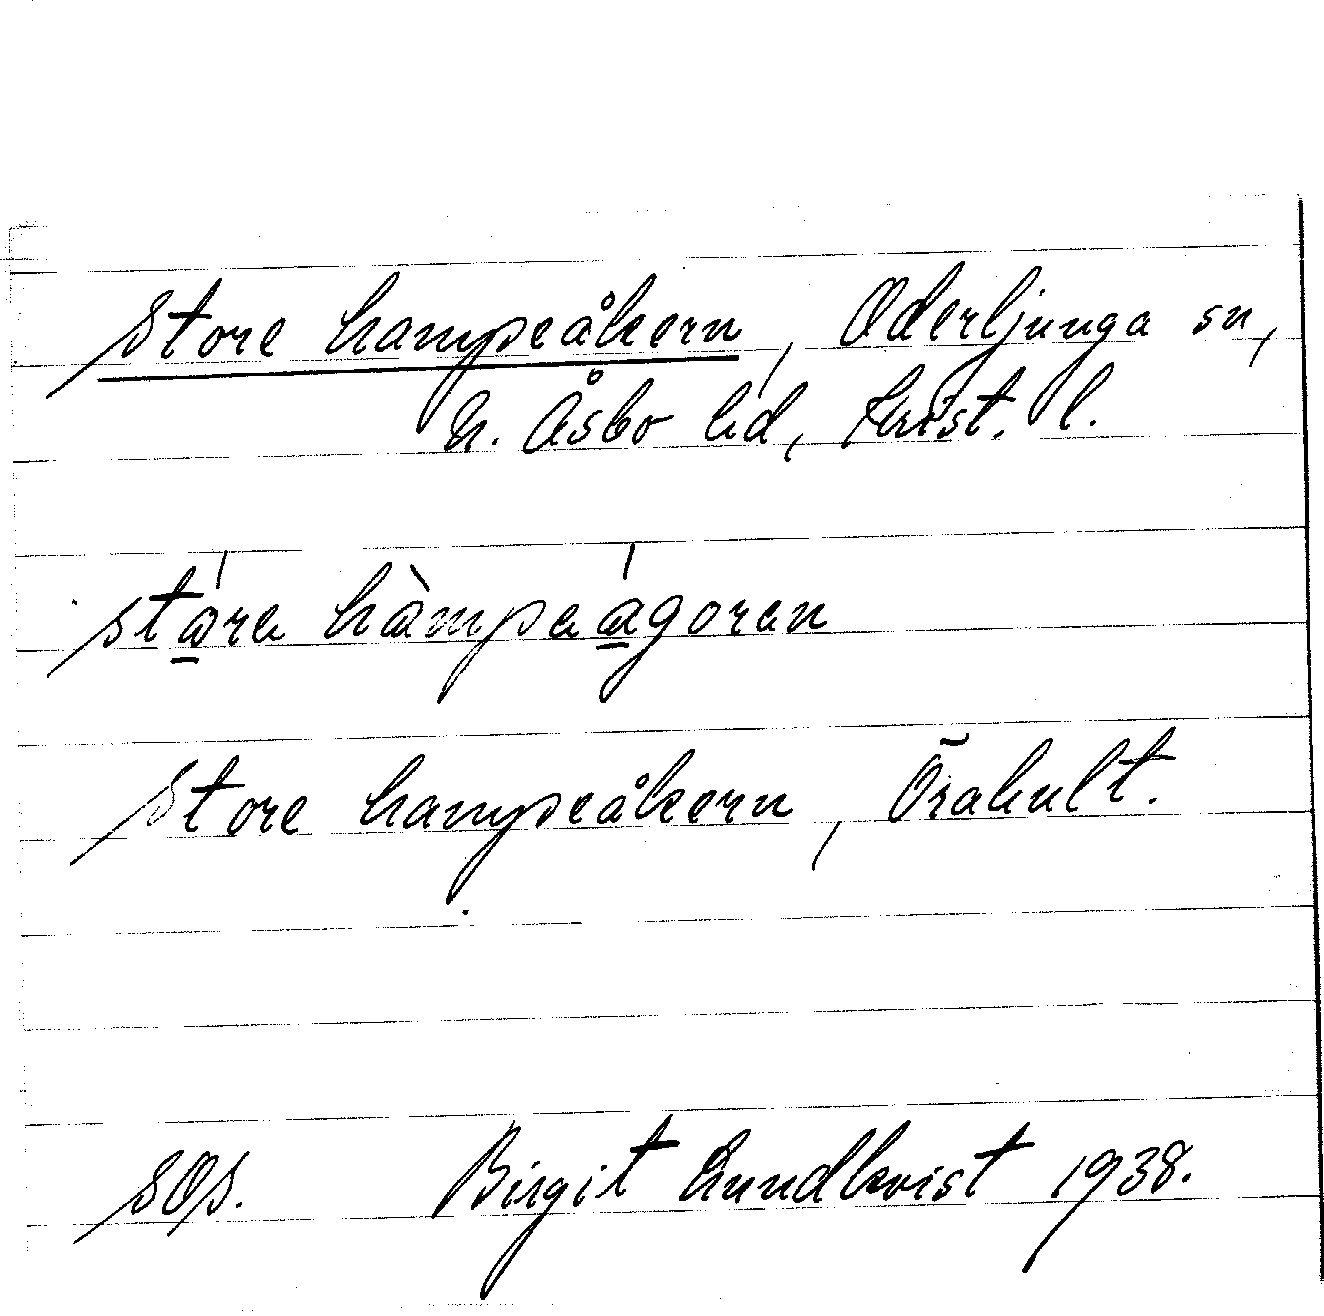 Store hampeåkern, Oderljunga sn,
N. Åsbo hd, Krist. l.
stа̱́re hàmpeá̱goren
Store hampeåkern, Örakult.
SOS. Birgit Lundkvist 1938.